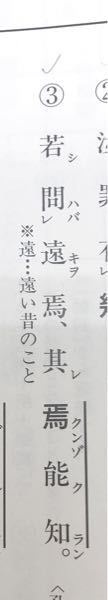 ③ 若シ問ハバレ遠キヲ焉、其レ焉クンゾ能ク知ラン。
※遠…遠い昔のこと